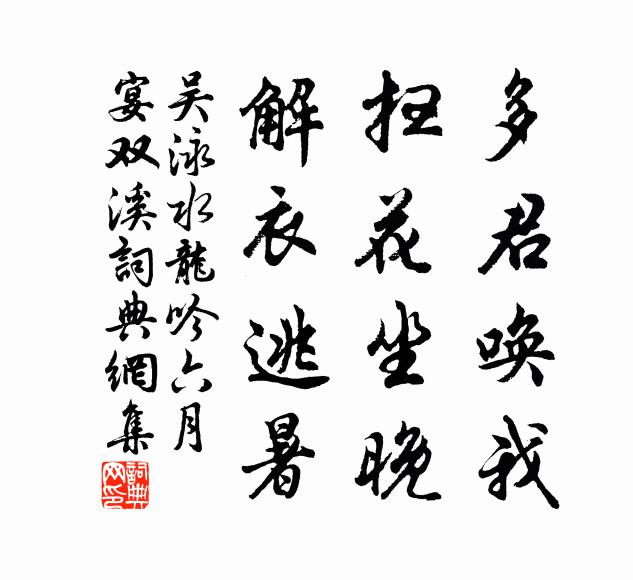 多君唤我
扫花坐晚
解衣逃暑
吴泳水龍吟六月
宴双溪詞典網集
詞典网印